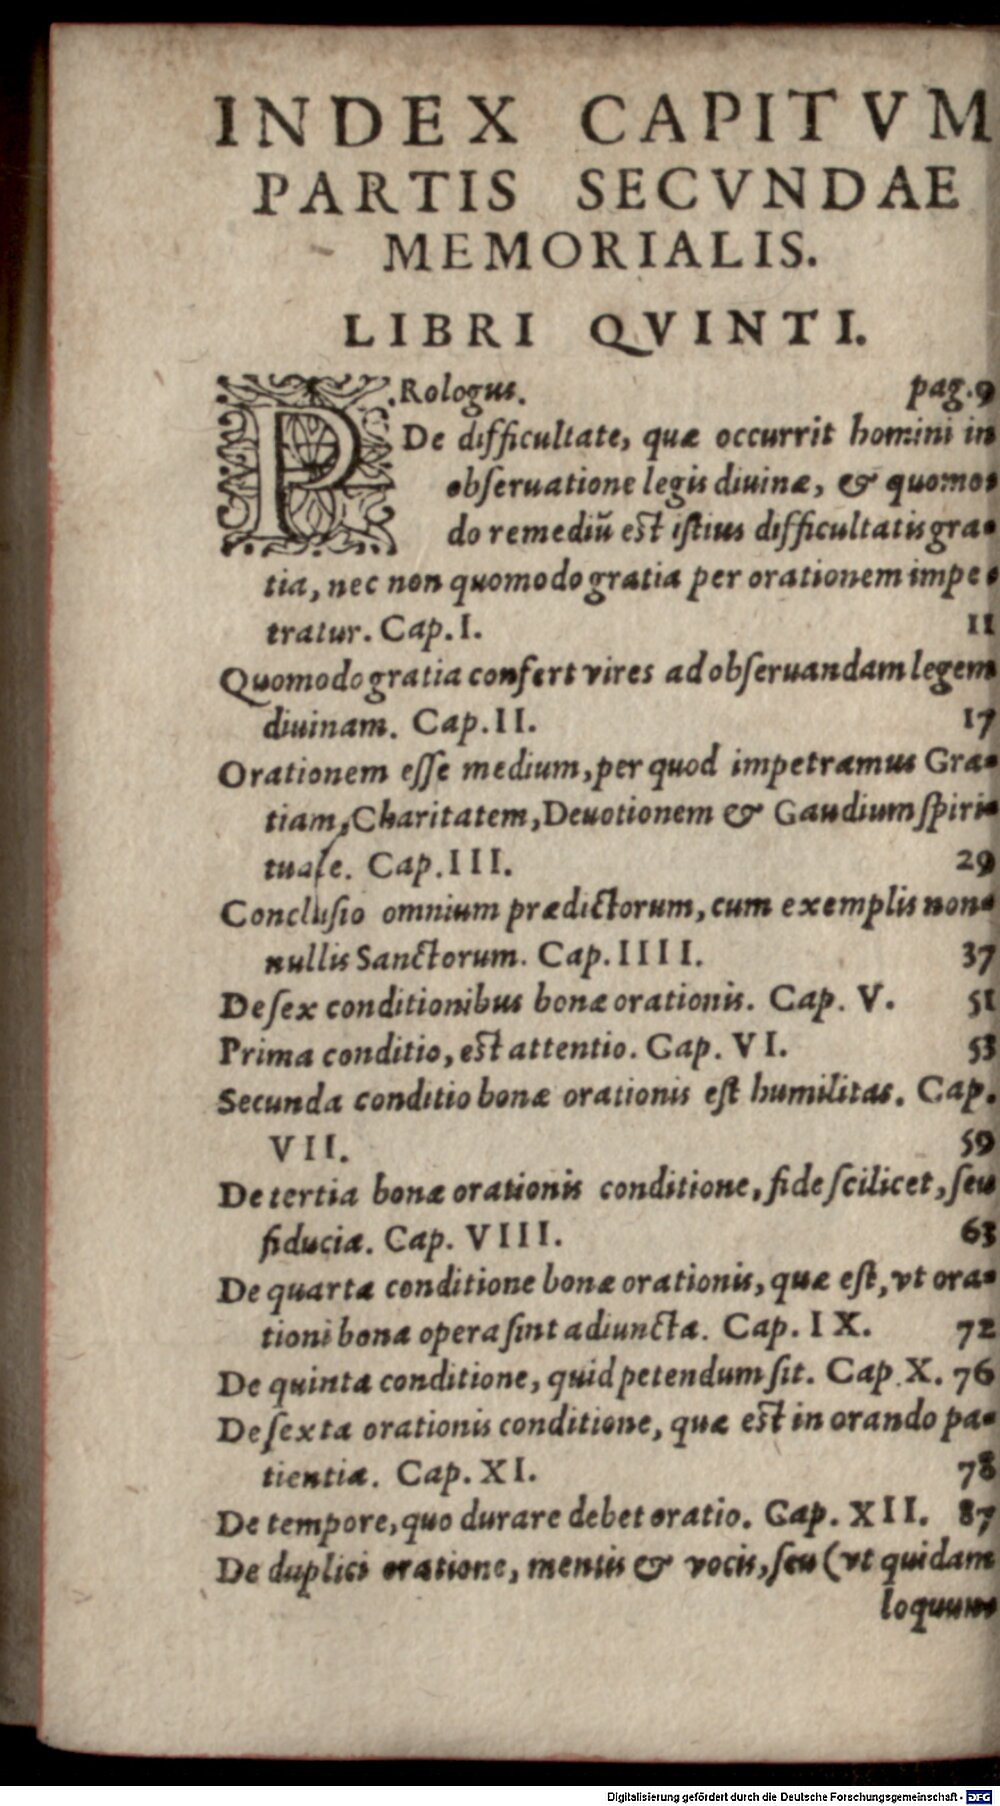 INDEX CAPITVM
PARTIS SECVNDAE
MEMORIALIS.
LIBRI QVINTI.
PRologus. pag.9
De difficultate, quæ occurrit homini in
obſeruatione legis diuinæ, & quomo-
do remediũ est iſtius difficultatis gra-
tia, nec non quomodo gratia per orationem impe-
tratur. Cap. I. 11
Quomodo gratia confert vires ad obſeruandam legem
diuinam. Cap. II. 17
Orationem eſſe medium, per quod impetramus Gra-
tiam, Charitatem, Deuotionem & Gaudium ſpiri-
tuale. Cap. III. 29
Concluſio omnium prædictorum, cum exemplis non-
nullis Sanctorum. Cap. IIII. 37
De ſex conditionibus bonæ orationis. Cap. V. 51
Prima conditio, est attentio. Cap. VI. 53
Secunda conditio bonæ orationis eſt humilitas. Cap.
VII. 59
De tertia bonæ orationis conditione, fide ſcilicet, ſeu
fiducia. Cap. VIII. 63
De quarta conditione bonæ orationis, quæ eſt, vt ora-
tioni bona opera ſint adiuncta. Cap. IX. 72
De quinta conditione, quid petendum ſit. Cap. X. 76
De ſexta orationis conditione, quæ est in orando pa-
tientia. Cap. XI. 78
De tempore, quo durare debet oratio. Cap. XII. 87
De duplici oratione, mentis & vocis, ſeu (vt quidam
loquun-
Digitalisierung gefördert durch die Deutsche Forschungsgemeinschaft - DFG